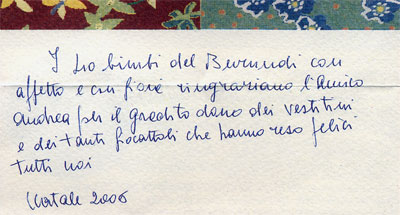 I 40 bimbi del Burundi con
affetto e con gioia ringraziano l'Amico
Andrea per il gradito dono dei vestitini
e dei tanti giocattoli che hanno reso felici
tutti noi
Natale 2006